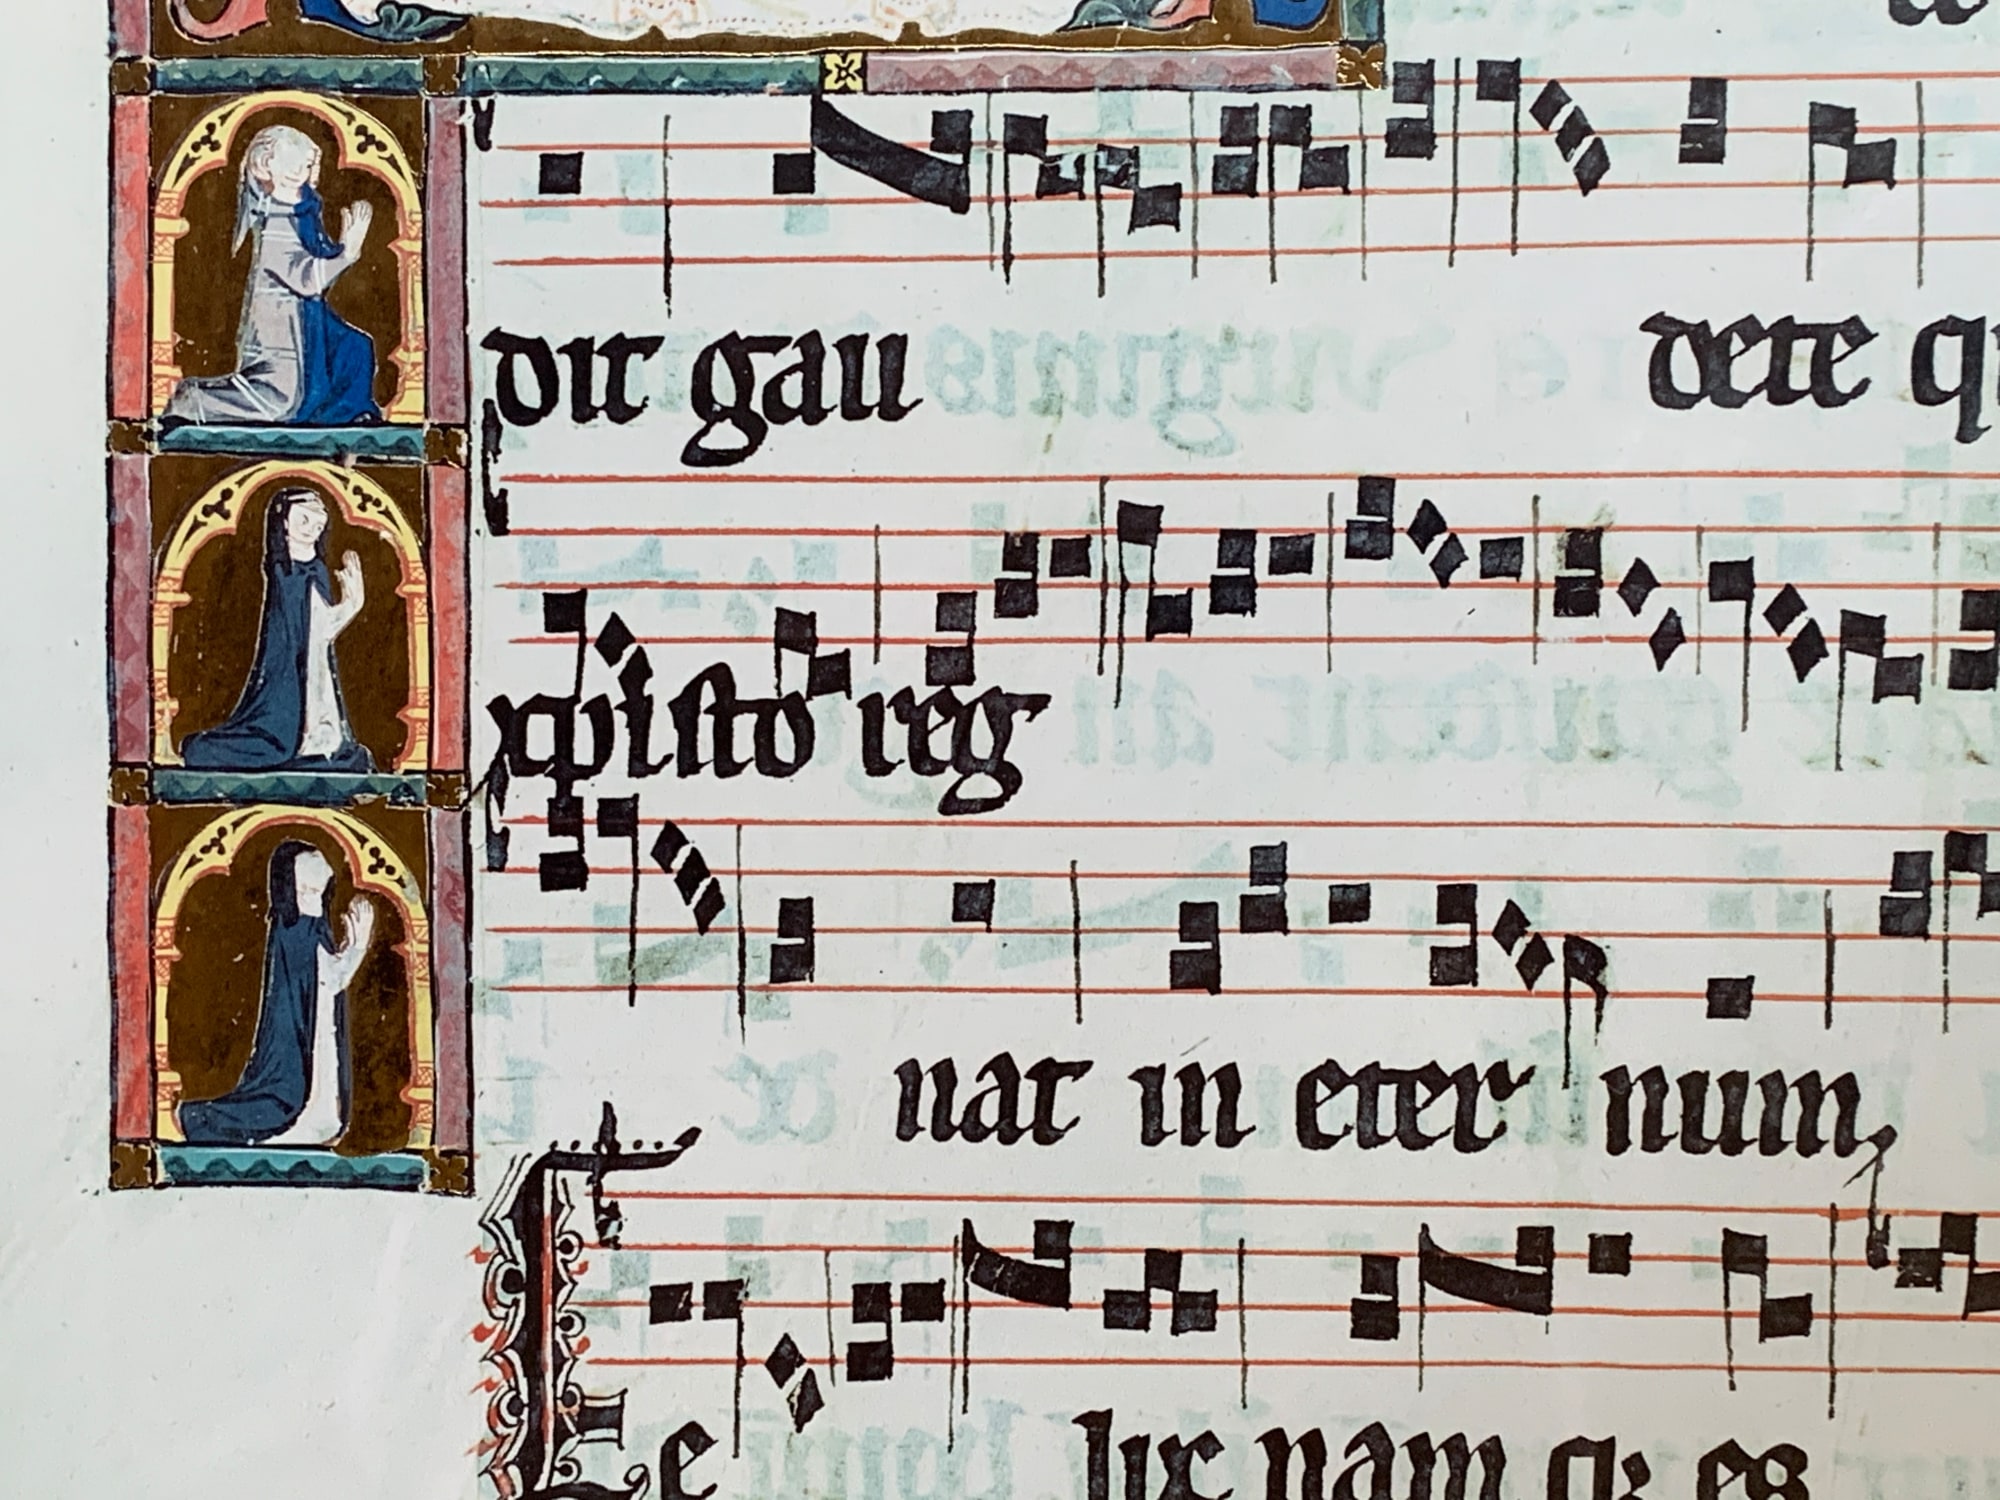 dit gau dete
xpisto reg
nat in eter num
Fe lix nam es